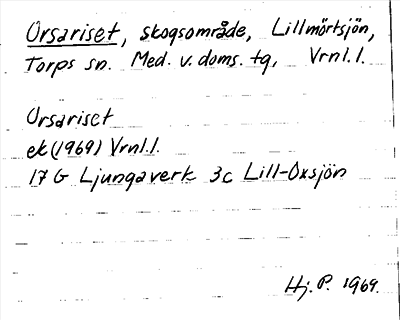 Orsariset, skogsområde, Lillmörtsjön,
Torps sn. Med. v. doms. tg, Vrnl.l.
Orsariset
ek (1969) Vrnl.l.
17 G Ljungaverk 3c Lill-Oxsjön
Hj. P. 1969.